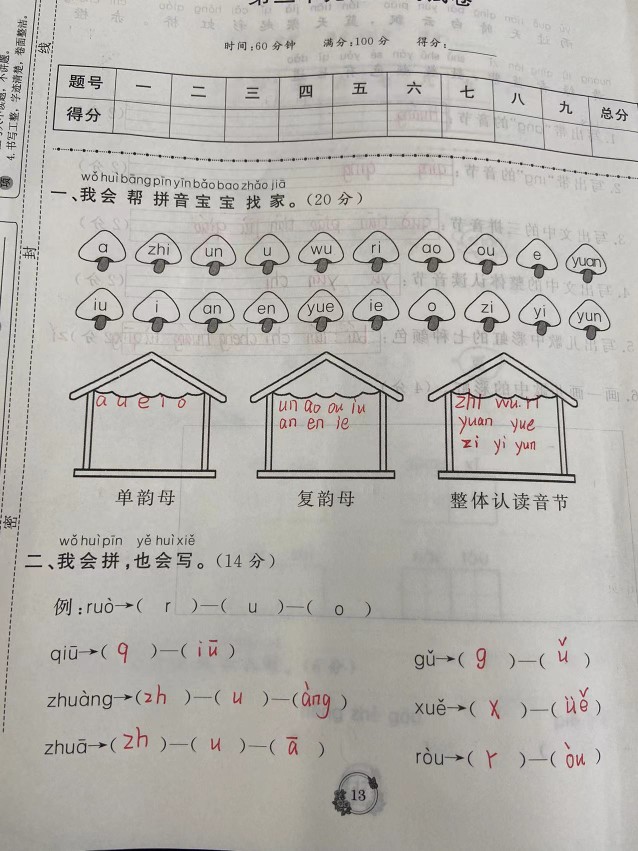 时间:60分钟 满分:100分 得分:
题号 一 二 三 四 五 六 七 八 九 总分
得分
4. 书写工整,字迹清楚,卷面整洁。
线
封
密
wǒ huì bāng pīn yīn bǎo bao zhǎo jiā
一、我会帮拼音宝宝找家。(20分)
a zhi un u wu ri ao ou e yuan
iu i an en yue ie o zi yi yun
a u e i o
un ao ou iu
an en ie
zhi wu ri
yuan yue
zi yi yun
单韵母 复韵母 整体认读音节
wǒ huì pīn yě huì xiě
二、我会拼,也会写。(14分)
例:ruò→( r )—( u )—( o )
qiū→( q )—( iū ) gǔ→( g )—( ǔ )
zhuàng→( zh )—( u )—( àng ) xuě→( x )—( üě )
zhuā→( zh )—( u )—( ā ) ròu→( r )—( òu )
13